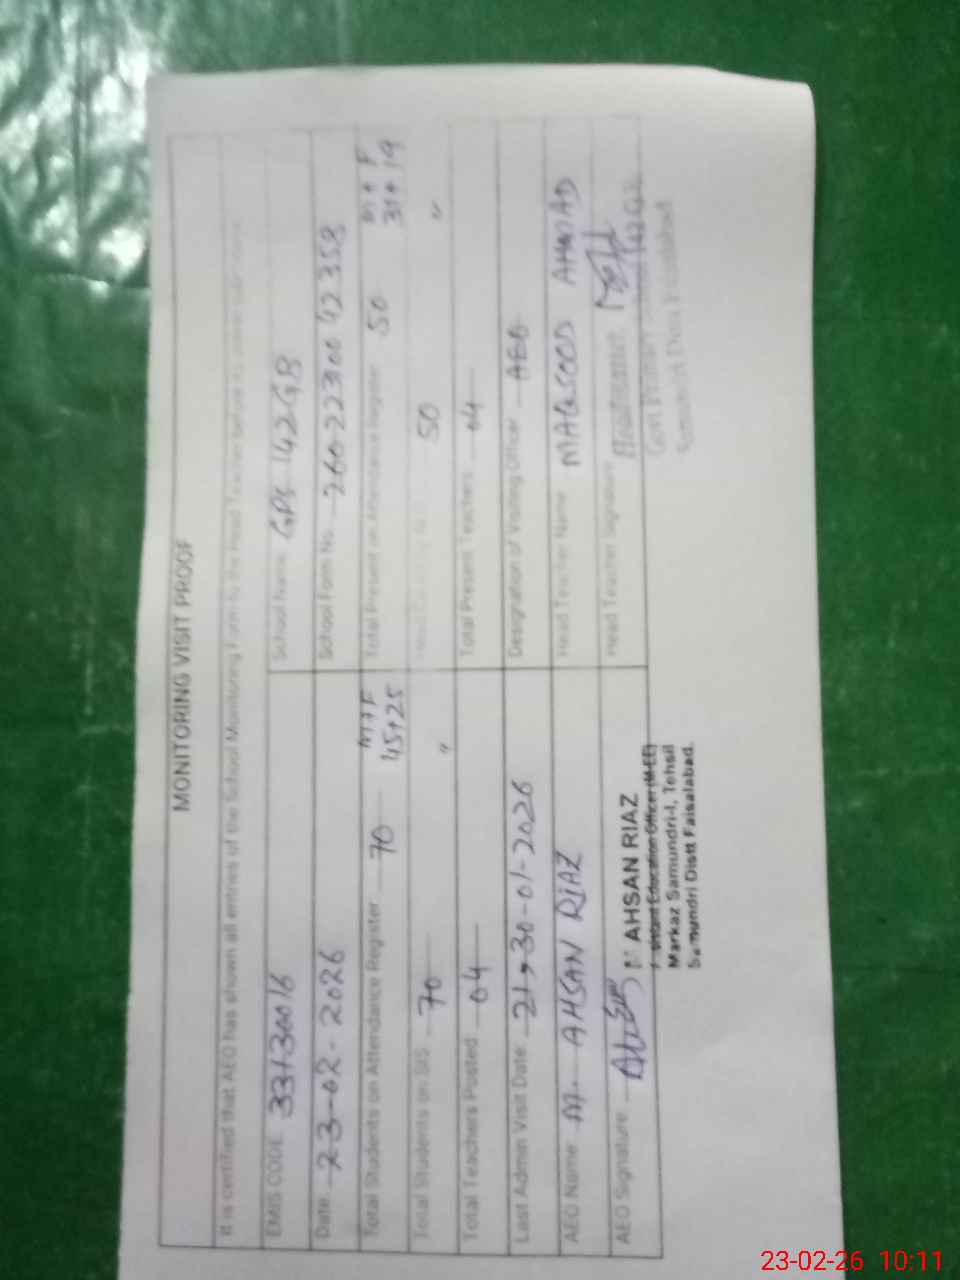 MONITORING VISIT PROOF
It is certified that AEO has shown all entries of the School Monitoring Form to the Head Teacher before
EMIS CODE 33130016
School Name GPS 142GB
Date 23-02-2026
School Form No. 26022300 42358
Total Students on Attendance Register 70 M+F 45+25
Total Present on Attendance Register 50 M+F 31+19
Total Students on SIS 70 "
50 "
Total Teachers Posted 04
Total Present Teachers 04
Last Admin Visit Date 21,30-01-2026
Designation of Visiting Officer AEO
AEO Name M. AHSAN RIAZ
Head Teacher Name MAQSOOD AHMAD
AEO Signature
Head Teacher Signature
AHSAN RIAZ
Assistant Education Officer (M-EE)
Markaz Samundri-I, Tehsil
Samundri Distt Faisalabad.
Headmaster
Govt Primary
Samundri Distt Faisalabad
23-02-26 10:11